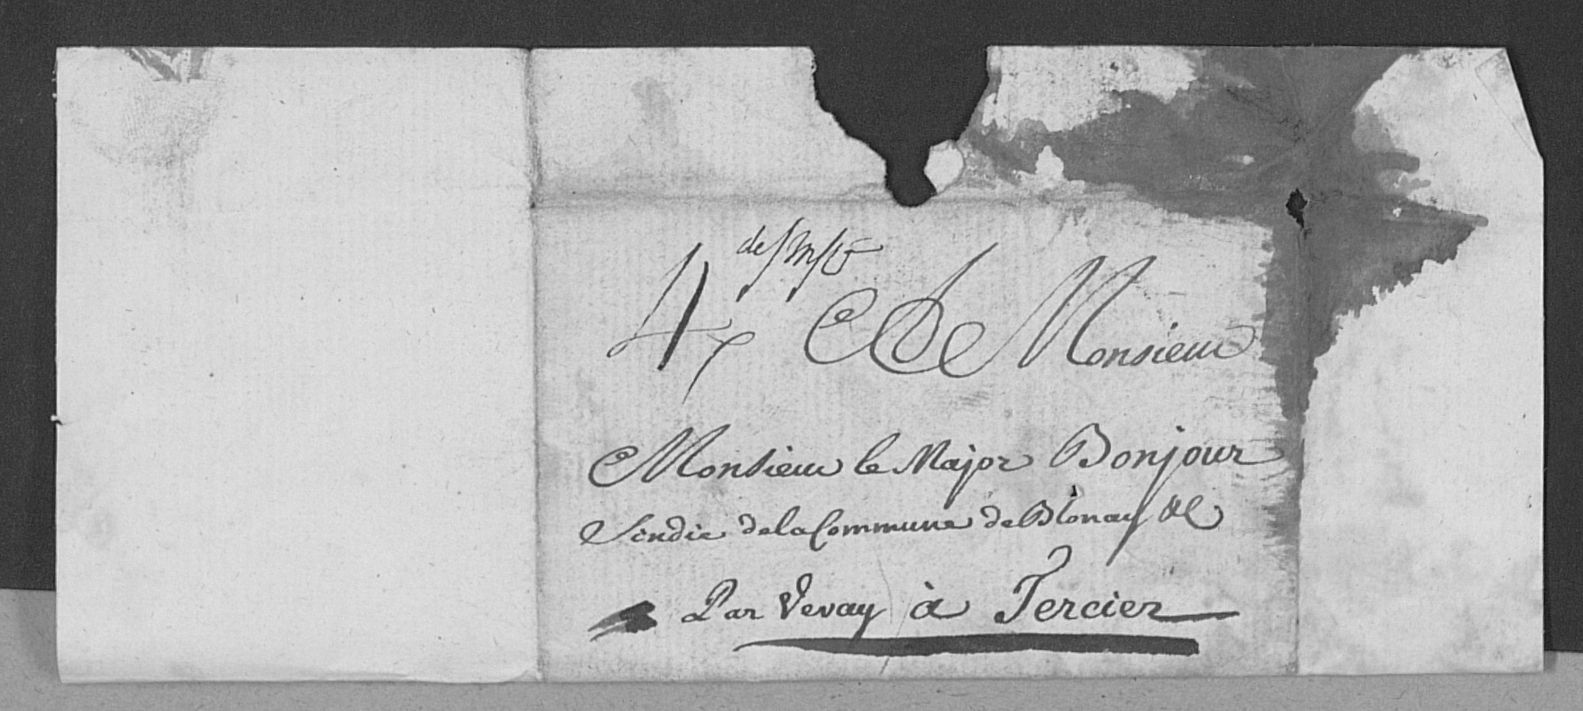 4
A Monsieur
Monsieur le Major Bonjour
Sindic de la Commune de Blonay &c
Par Vevay à Tercier